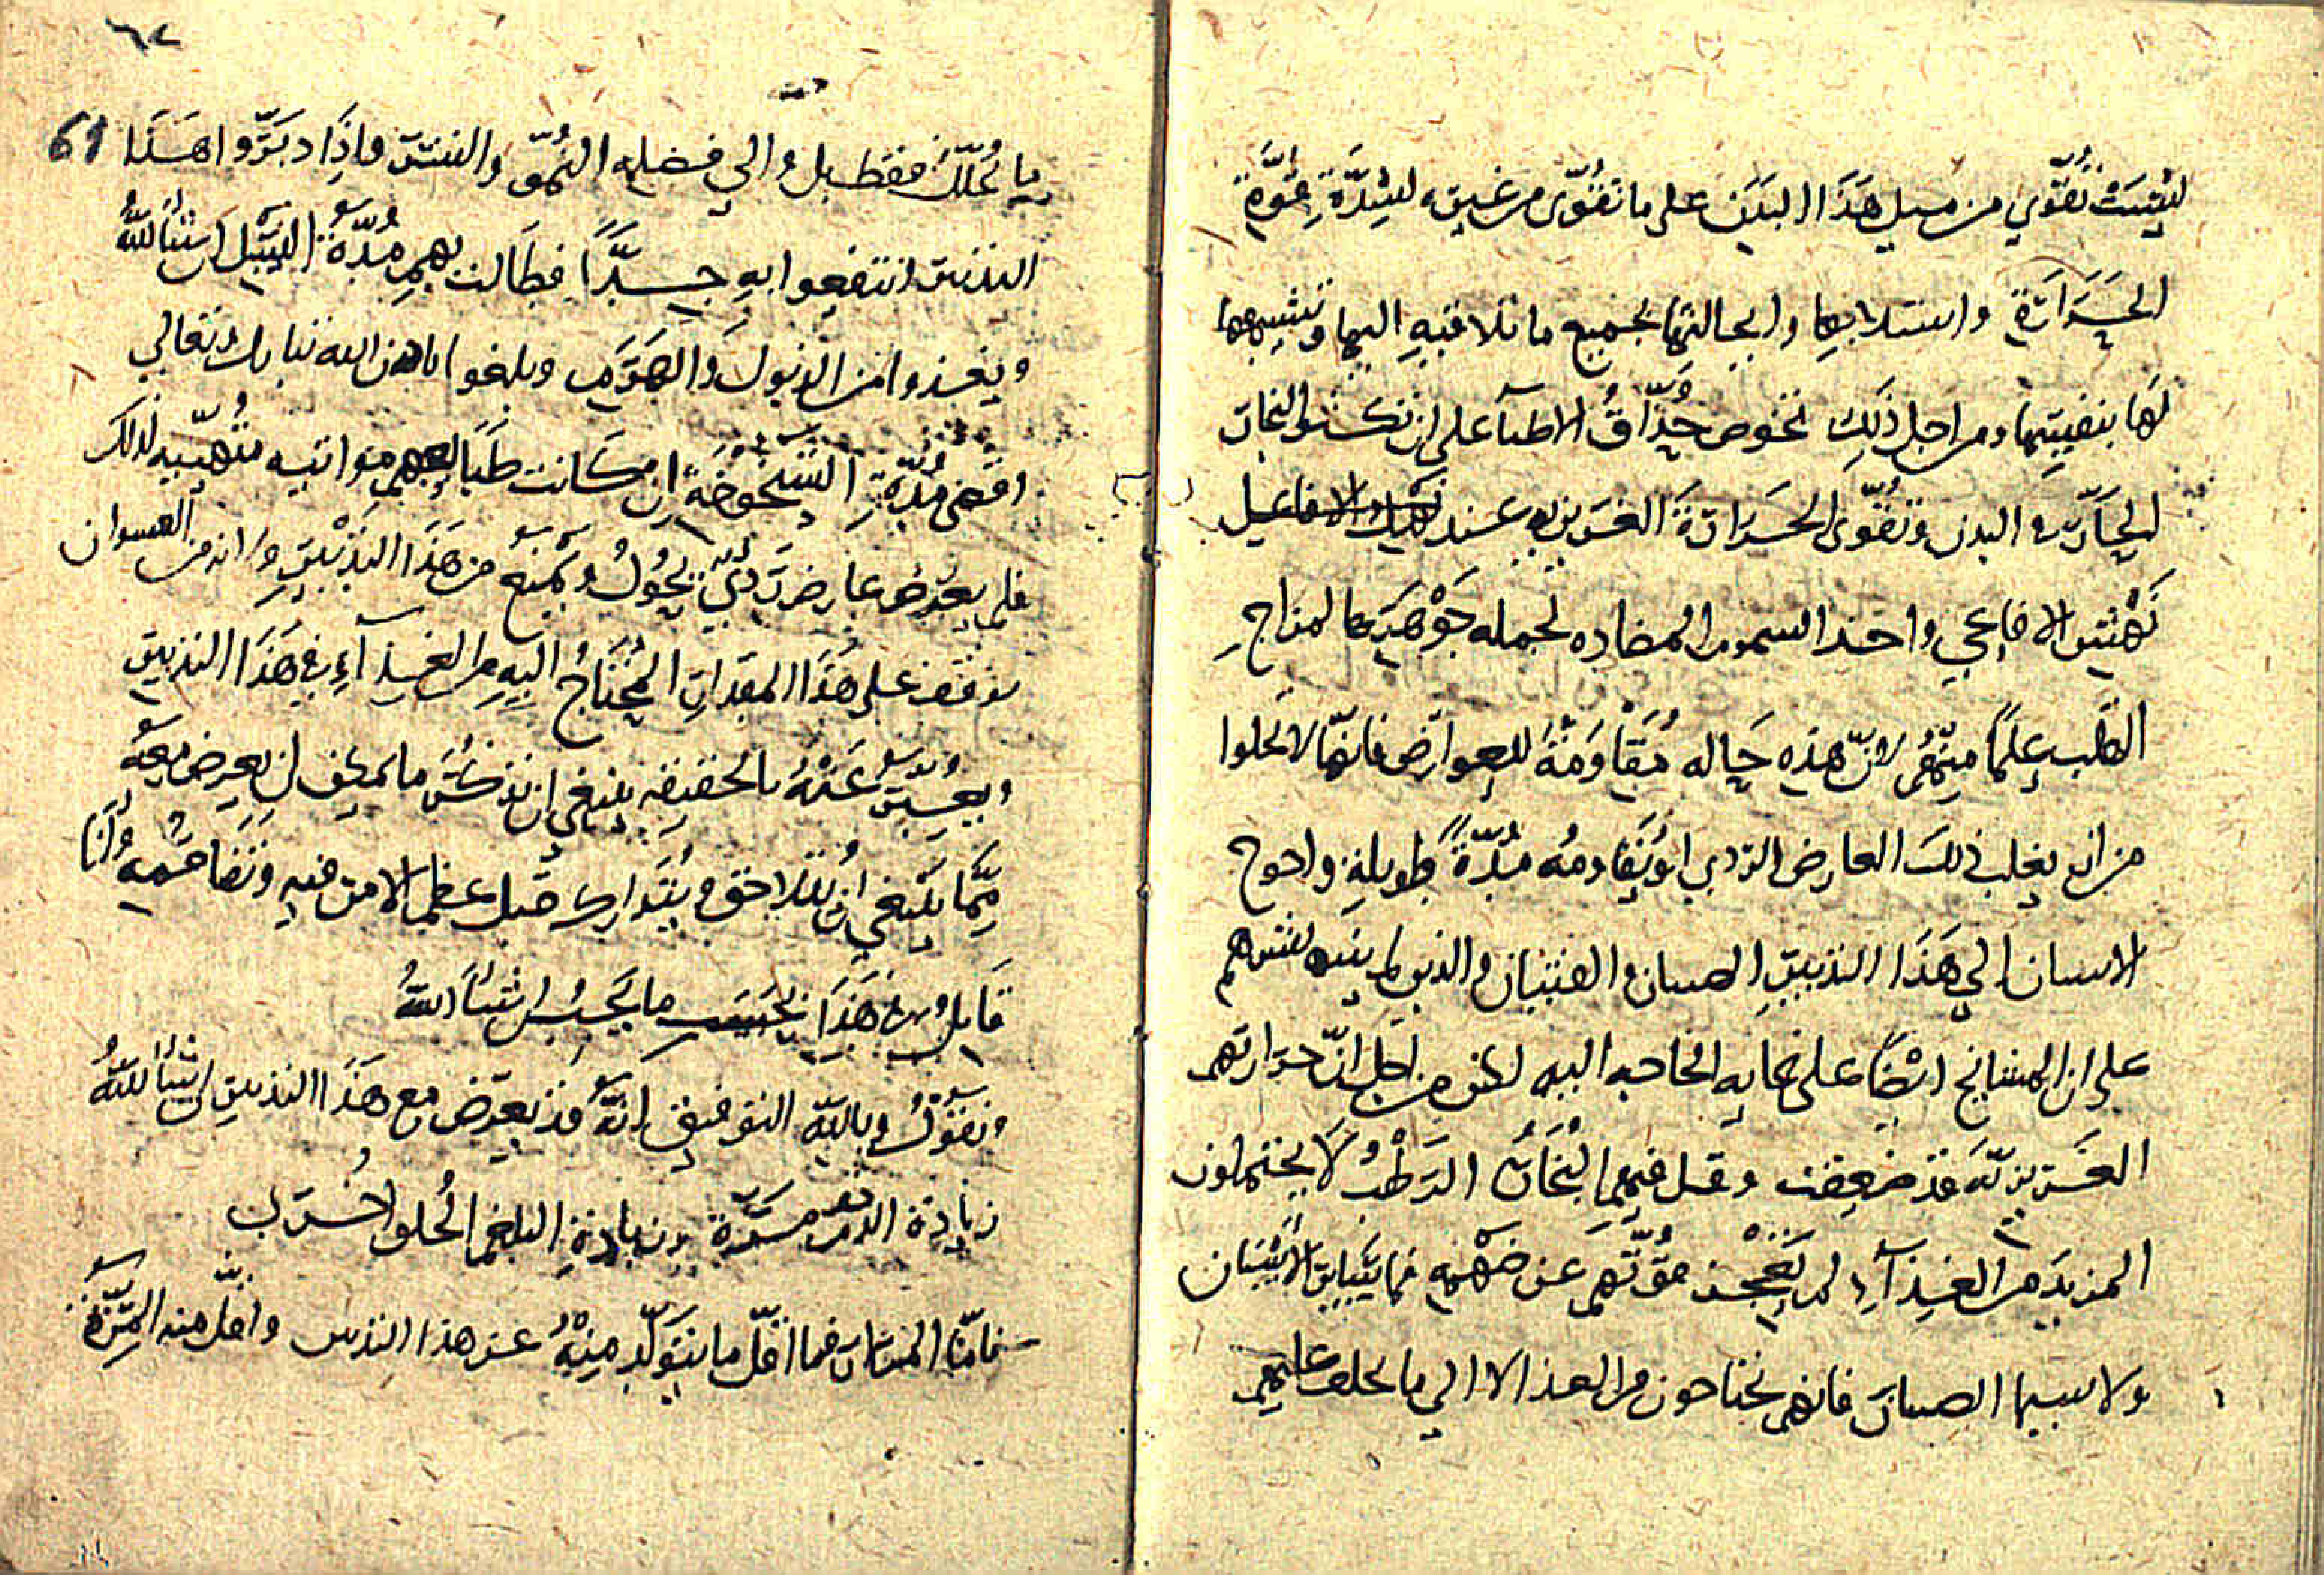 ليست تقوي من ميل هذا البدن على ما تقوى من غيره لشدة قوة
الحرارة واستلابها وإحالتها لجميع ما تلاقيه اليها وتشبيهها
لها بنفسها ومن اجل ذلك نحوص حذاق الاطباء على ان تكثر البخار
الحار في البدن وتقوى الحرارة الغريزيه عند تلك الافاعيل
كنهش الافاعي واخذ السموم المضاده لجمله جوهرها لمزاج
القلب علما منهم لان هذه حاله مقاومة للعوارض فانها لا تخلوا
من ان يغلب ذلك العارض الردي او يقاومه مدة طويلة واحوج
الاسنان الي هذا التدبير الصبيان والفتيان والذين
على ان المشايخ ايضا على غايه الحاجه اليه لكن من اجل ان حرارتهم
الغريزية قد ضعفت وقل فيهم البخار الرطب لا يحتملون
المزيد من الغذآء لم تعجز قوتهم عن هضمه فما يتباين الاسنان
ولا سيما الصبيان فانهم يحتاجون من الغذا لا الي ما يخلف عليهم
٦٢
61
ما تحلل فقط بل والي فضله النمو والنشو فاذا دبروا هذا
التدبير انتفعوا به جدا فطالت بهم مدة النيل ان شاء الله
ويغذوا من الذبول والهرم وبلغوا باذن الله تبارك وتعالي
اقصى مدة الشيخوخة ان كانت طبايعهم مواتيه متهيية لذلك
فلم يعرض عارض ردي يحول ويمنع من هذا التدبير
نوقف على هذا المقدار المحتاج اليه من الغذآء في هذا التدبير
عنه بالحقيقه ينبغي ان نذكر ما يمكن ان يعرض معه
مما ينبغي ان يتلاحق ويتدارك قبل عظم الامر فيه وتفاقمه وانا
قايل في هذا بحسب ما يجب ان شاء الله
ونقول وبالله التوفيق انه قد يعرض مع هذا التدبير ان شاء الله
زيادة الدم مرة وزيادة البلغم الحلو اخرى
فاما المرتان فما اقل ما يتولد منه عن هذا التدبير واقل منه المرة